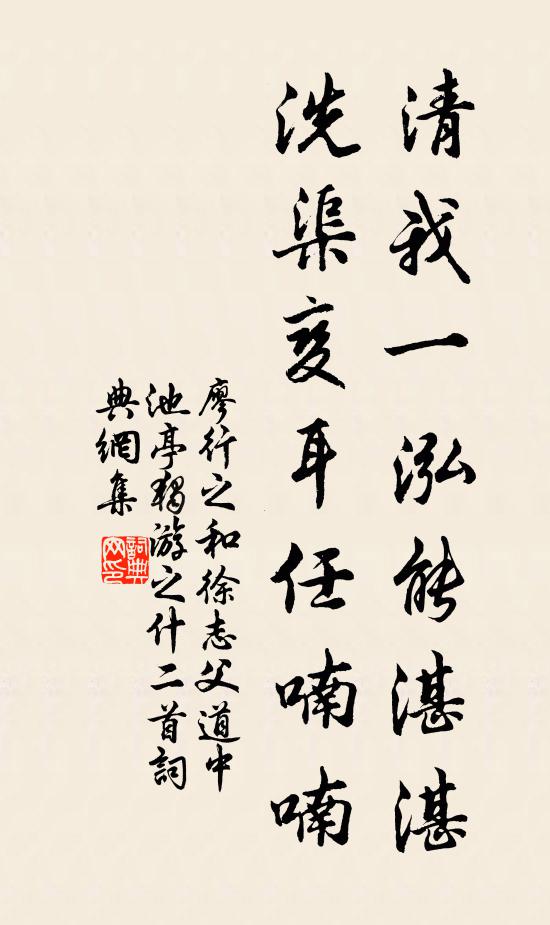 清我一泓能湛湛
洗渠夋耳任喃喃
廖行之和徐志父道中
池亭獨游之什二首詞
典網集
詞典網印